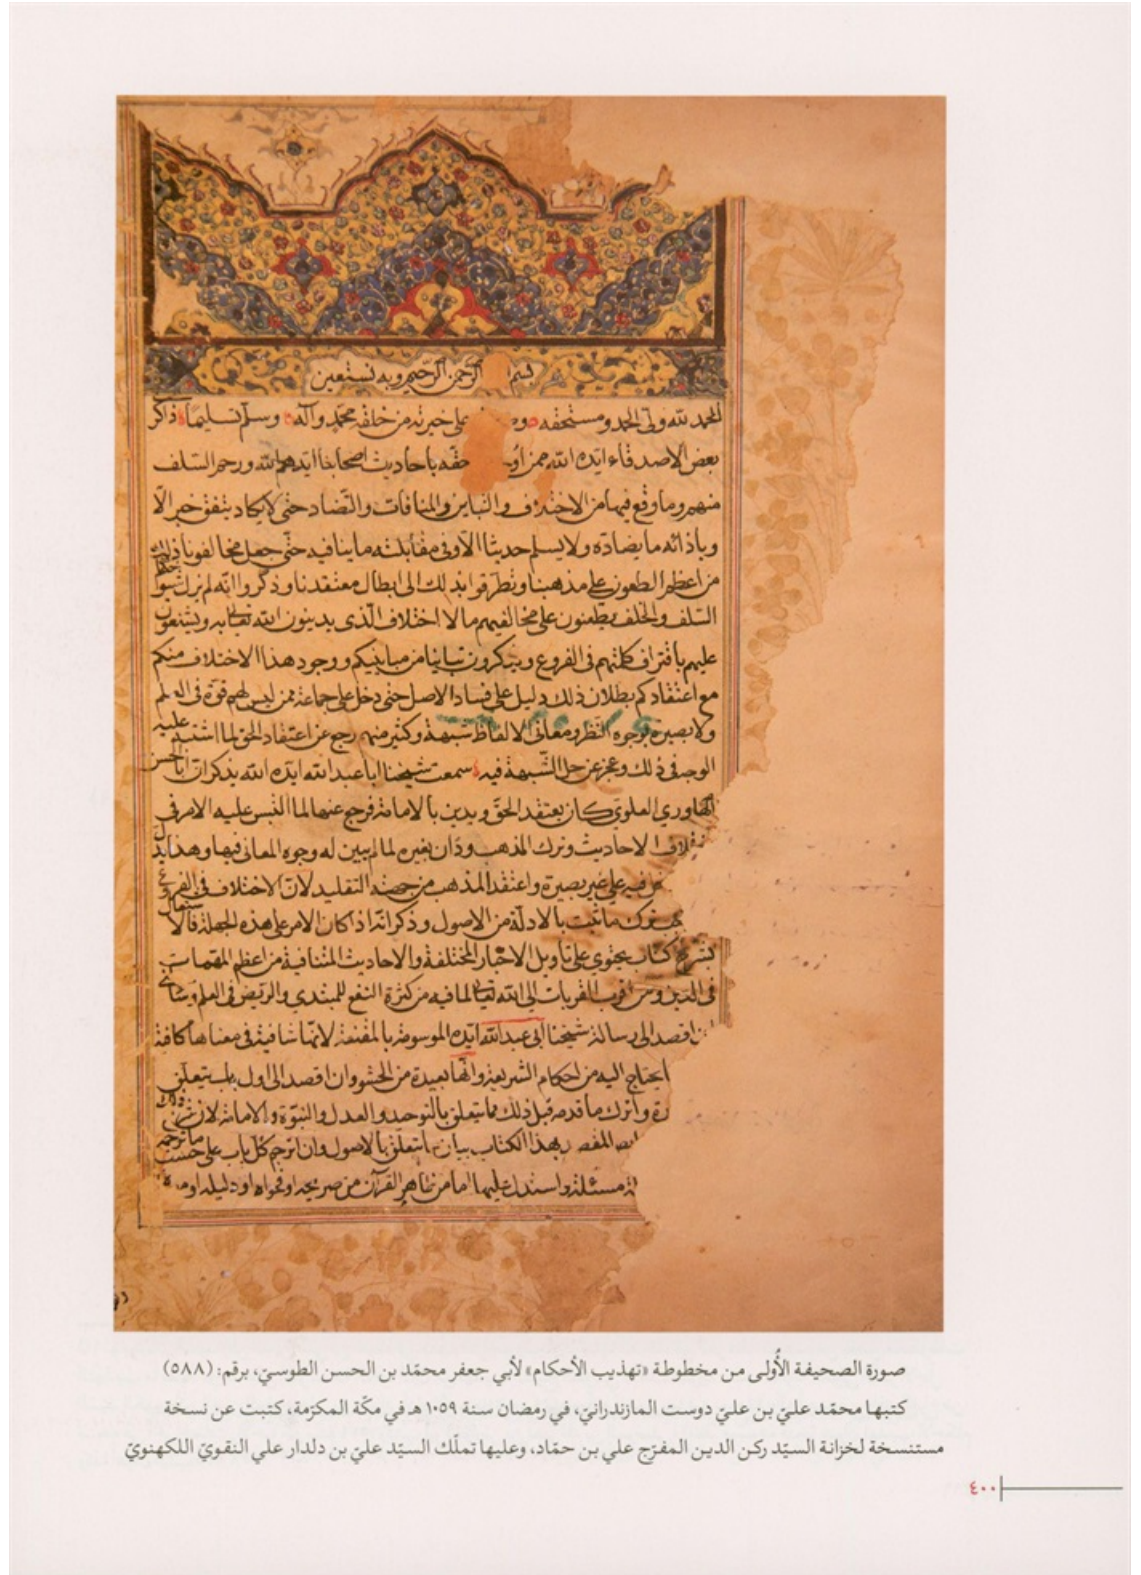 بسم الرّحمن الرّحيم وبه نستعين
الحمد لله ولىّ الحمد ومستحقه وص على خيرته من خلقه محمّد وآله وسلّم تسليمًا ذاكر
بعض الاصدقاء ايّده الله ممن حقّه باحاديث اصحابنا ايّدهم الله ورحم السّلف
منهم وما وقع فيها من الاختلاف والتباين والمنافات والتّضاد حتى لا يكاد يتفق خبر الّا
وبأذائه ما يضادّه ولا يسلم حديث الّا وفى مقابلته ما ينافيه حتّى جعل مخالفونا ذلك
من اعظم الطعون على مذهبنا وتطرّقوا بذلك الى ابطال معتقدنا وذكروا انّه لم يزل شيوخكم
السّلف والخلف يطعنون على مخالفيهم بالاختلاف الّذى يدينون الله تعالى به ويشنعون
عليهم بافتراق كلمتهم فى الفروع ويذكرون وجود هذا الاختلاف منكم
مع اعتقادكم بطلان ذلك دليل على فساد الاصل حتى دخل على جماعة ممن ليس لهم قوّة فى العلم
ولا بصيرة بوجوه النّظر ومعانى الالفاظ شبهة وكثير منهم رجع عن اعتقاد الحق لما اشتبه عليه
الوجه فى ذلك وعجز عن حلّ الشّبهة فيه سمعت شيخنا ابا عبد الله ايّده الله يذكر انّ ابا الحسن
الهاوري العلوى كان يعتقد الحقّ ويدين بالامامة فرجع عنها لما التبس عليه الامر فى
الاحاديث وترك المذهب ودان بغيره لما لم يبين له وجوه المعانى فيها وهذا يدلّ
فيه على غير بصيرة واعتقد المذهب من جهة التقليد لانّ الاختلاف فى الفروع
ترك ما ثبت بالادلّة من الاصول وذكر انّه اذا كان الامر على هذه الجملة فالاشتغال
بشرح كتاب يحتوي على تاويل الاخبار المختلفة والاحاديث المتنافية من اعظم المهمات
فى الدّين ومن اقرب القربات الى الله تعالى لما فيه من كثرة النفع للمبتدي والرّيّض فى العلم وسالنى
ان اقصد الى رسالة شيخنا ابى عبد الله ايّده الموسومة بالمقنعة لانّها شافية فى معناها كافية
يحتاج اليه من احكام الشريعة وانّها بعيدة من الحشو وان اقصد الى اول باب يتعلّق
واترك ما قدمه قبل ذلك مما يتعلق بالتوحيد والعدل والنبوّة والامامة لان شرح ذلك
بهذا الكتاب بيان ما يتعلّق بالاصول وان اترجم كلّ باب على حسب ما ترجمه
مسئلة واستدل عليها اما من ظاهر القرآن من صريحه او فحواه او دليله او
صورة الصحيفة الأُولى من مخطوطة «تهذيب الأحكام» لأبي جعفر محمّد بن الحسن الطوسيّ، برقم: (٥٨٨)
كتبها محمّد عليّ بن عليّ دوست المازندرانيّ، في رمضان سنة ١٠٥٩ هـ في مكّة المكرّمة، كتبت عن نسخة
مستنسخة لخزانة السيّد ركن الدين المفرّج علي بن حمّاد، وعليها تملّك السيّد عليّ بن دلدار علي النقويّ اللكهنويّ
٤٠٠